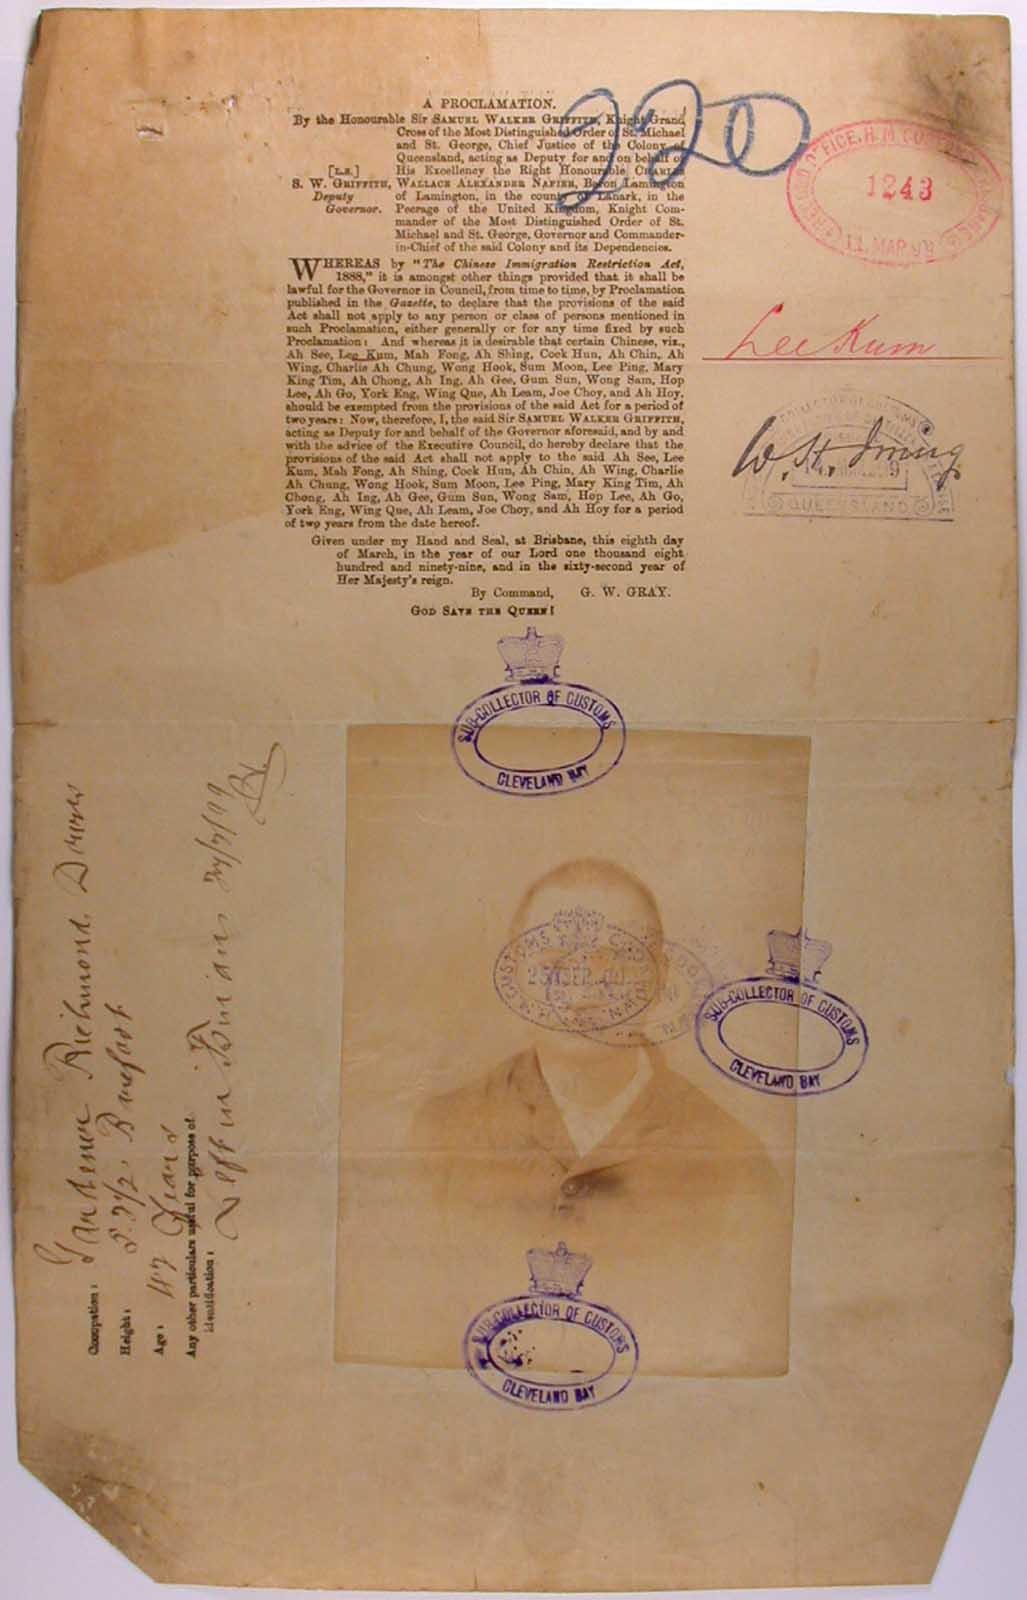 A PROCLAMATION.
By the Honourable Sir SAMUEL WALKER GRIFFITH, Knight Grand
Cross of the Most Distinguished Order of St. Michael
and St. George, Chief Justice of the Colony of
Queensland, acting as Deputy for and on behalf of
[L.S.] His Excellency the Right Honourable CHARLES
S. W. GRIFFITH, WALLACE ALEXANDER NAPIER, Baron Lamington
Deputy of Lamington, in the county of Lanark, in the
Governor. Peerage of the United Kingdom, Knight Com-
mander of the Most Distinguished Order of St.
Michael and St. George, Governor and Commander-
in-Chief of the said Colony and its Dependencies.
WHEREAS by "The Chinese Immigration Restriction Act,
1888," it is amongst other things provided that it shall be
lawful for the Governor in Council, from time to time, by Proclamation
published in the Gazette, to declare that the provisions of the said
Act shall not apply to any person or class of persons mentioned in
such Proclamation, either generally or for any time fixed by such
Proclamation: And whereas it is desirable that certain Chinese, viz.,
Ah See, Lee Kum, Mah Fong, Ah Shing, Cock Hun, Ah Chin, Ah
Wing, Charlie Ah Chung, Wong Hook, Sum Moon, Lee Ping, Mary
King Tim, Ah Chong, Ah Ing, Ah Gee, Gum Sun, Wong Sam, Hop
Lee, Ah Go, York Eng, Wing Que, Ah Leam, Joe Choy, and Ah Hoy,
should be exempted from the provisions of the said Act for a period of
two years: Now, therefore, I, the said Sir SAMUEL WALKER GRIFFITH,
acting as Deputy for and behalf of the Governor aforesaid, and by and
with the advice of the Executive Council, do hereby declare that the
provisions of the said Act shall not apply to the said Ah See, Lee
Kum, Mah Fong, Ah Shing, Cock Hun, Ah Chin, Ah Wing, Charlie
Ah Chung, Wong Hook, Sum Moon, Lee Ping, Mary King Tim, Ah
Chong, Ah Ing, Ah Gee, Gum Sun, Wong Sam, Hop Lee, Ah Go,
York Eng, Wing Que, Ah Leam, Joe Choy, and Ah Hoy for a period
of two years from the date hereof.
Given under my Hand and Seal, at Brisbane, this eighth day
of March, in the year of our Lord one thousand eight
hundred and ninety-nine, and in the sixty-second year of
Her Majesty's reign.
By Command, G. W. GRAY.
GOD SAVE THE QUEEN!
220
OFFICE, H.M CUSTOMS
1243
11. MAR. 99
Lee Kum
W. St.
COLLECTOR OF CUSTOMS
QUEENSLAND
SUB-COLLECTOR OF CUSTOMS
CLEVELAND BAY
H.M CUSTOMS
25 SEP
SUB-COLLECTOR OF CUSTOMS
CLEVELAND BAY
SUB-COLLECTOR OF CUSTOMS
CLEVELAND BAY
Occupation: Gardener Richmond Downs
Height: 5.
Age: 47 Years
Any other particulars useful for purpose of
identification: